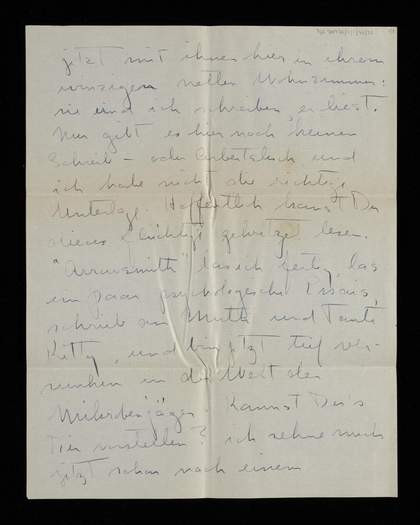 jetzt mit ihnen hier in ihrem
winzigen netten Wohnzimmer:
sie und ich schreiben, er liest.
Nur gibt es hier noch keinen
Schreib – oder Arbeitstisch und
ich habe nicht die richtige
Unterlage. Hoffentlich kannst Du
dieses flüchtige gekritzel lesen.
"Arrowsmith" las ich fertig, las
ein paar psychologische Essais,
schrieb an Mutti und Tante
Kitty, und bin jetzt tief ver-
sunken in die Welt der
Mikrobenjäger. Kannst Du's
Dir vorstellen? ich sehne mich
jetzt schon nach einem